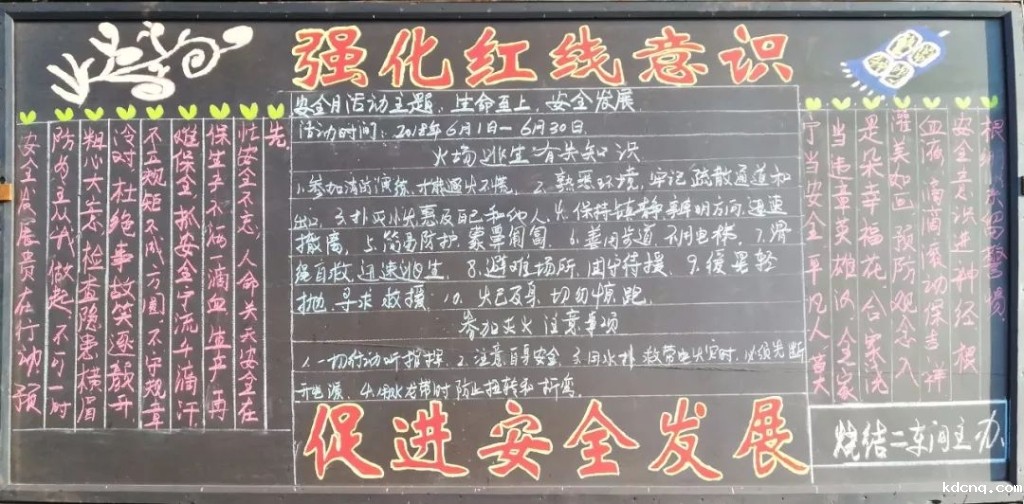 强化红线意识
安全月活动主题：生命至上、安全发展
活动时间：2018年6月1日—6月30日
火场逃生有关知识
1.参加消防演练，才能遇火不慌。 2.熟悉环境，牢记疏散通道和
出口。 3.扑灭小火惠及自己和他人。 4.保持镇静辨明方向迅速
撤离。 5.简易防护，蒙鼻匍匐。 6.善用步道不用电梯。 7.滑
绳自救迅速逃生。 8.避难场所，固守待援。 9.缓晃轻
抛，寻求救援。 10.火已及身，切勿惊跑。
参加灭火注意事项
1.一切行动听指挥。 2.注意自身安全。 3.用水扑救带电火灾时，必须先断
开电源。 4.水龙带时防止扭转和折弯。
促进安全发展
先
忙安全不忘，人命关天安全在
保生产不洒一滴血生产再
难保全抓安全宁流千滴汗
不立规矩不成方圆不守规章
冷对，杜绝事故笑逐颜开
粗心大意检查隐患横眉
防当先从我做起不可一时
安全发展贵在行动预
根
安全意识进神经根
血液，滴滴滚动保吉祥
灌美如画，预防观念入
是朵幸福花，合家浇
当违章英雄汉，全家
宁当安全平凡人莫大
烧结二车间主办
kdcnq.com